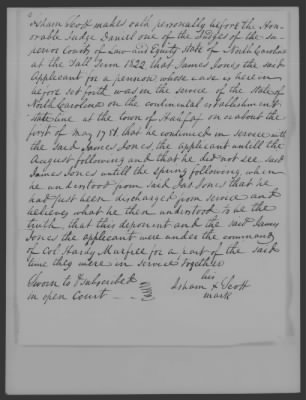 Isham Scott makes oath personally before the Hon-
orable Judge Daniel one of the Judges of the su-
perior Courts of Law and Equity State of North Carolina
at the Fall Term 1822 that James Jones the said
Applicant for a pension whose case is herein
before set forth was in the service of the State of
North Carolina on the continental establishment
state line at the town of Halifax on or about the
first of May 178 that he continued in service with
the said James Jones, the applicant untill the
August following and that he did not see said
James Jones untill the spring following, when
he understood from said Jas Jones that he
had just been discharged from service and
believes what he then understood to be the
truth, that this deponent and the said James
Jones the applicant were under the command
of Col Hardy Murfree for a part of the said
time they were in service together
Sworn to & subscribed his
in open Court - - Isham x Scott
mark